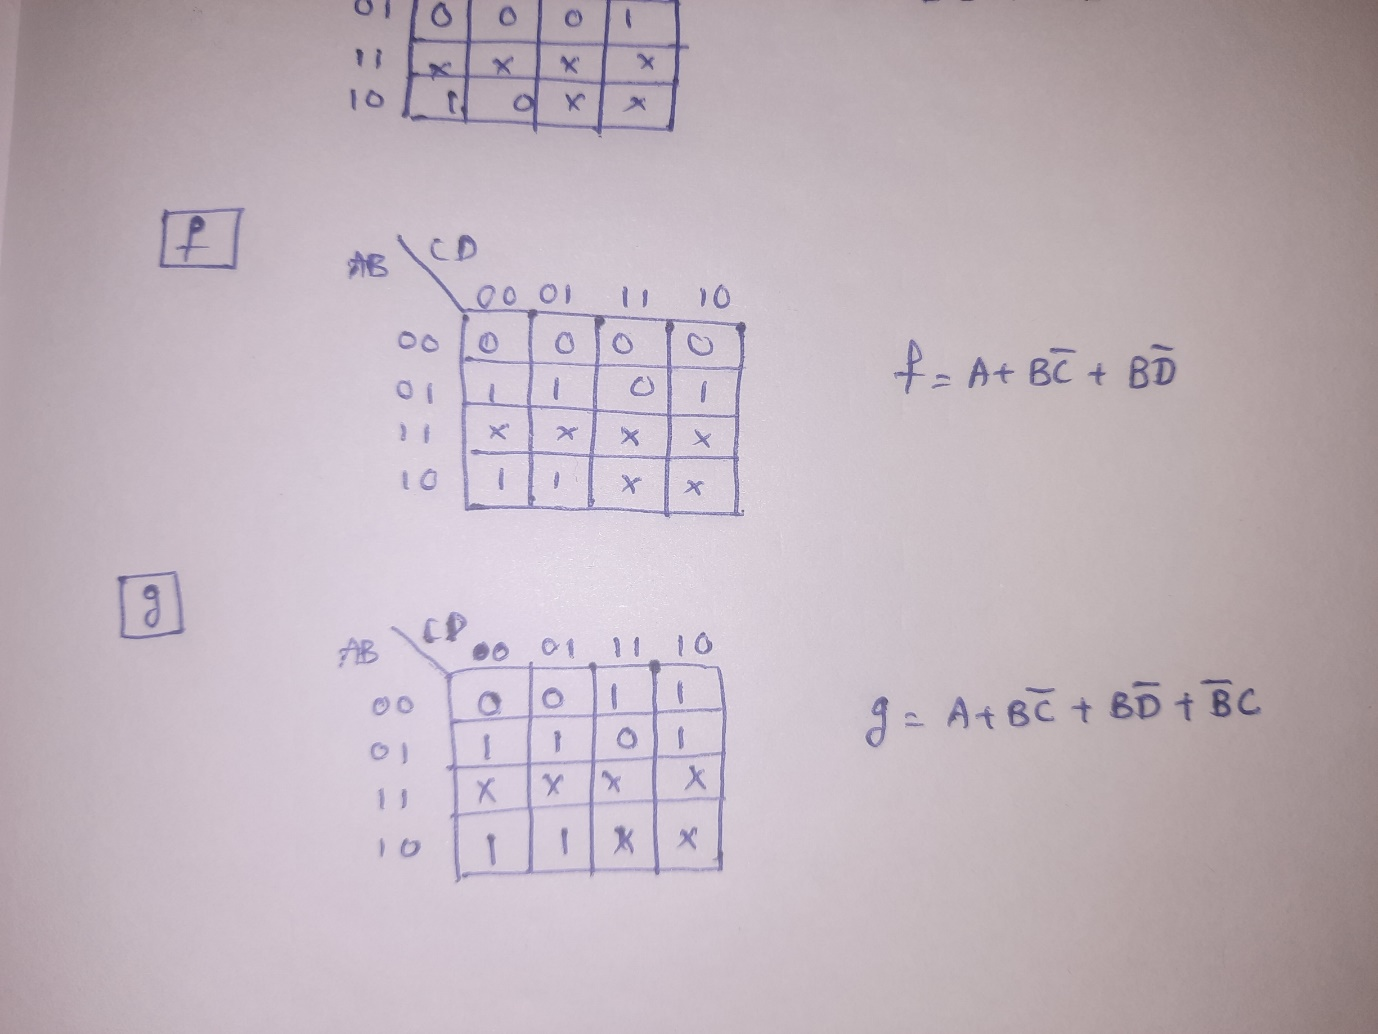 01 0 0 0 1
11 x x x x
10 1 0 x x
f
AB CD
00 01 11 10
00 0 0 0 0
01 1 1 0 1
11 x x x x
10 1 1 x x
f = A + BC̅ + BD̅
g
AB CD
00 01 11 10
00 0 0 1 1
01 1 1 0 1
11 x x x x
10 1 1 x x
g = A + BC̅ + BD̅ + B̅C